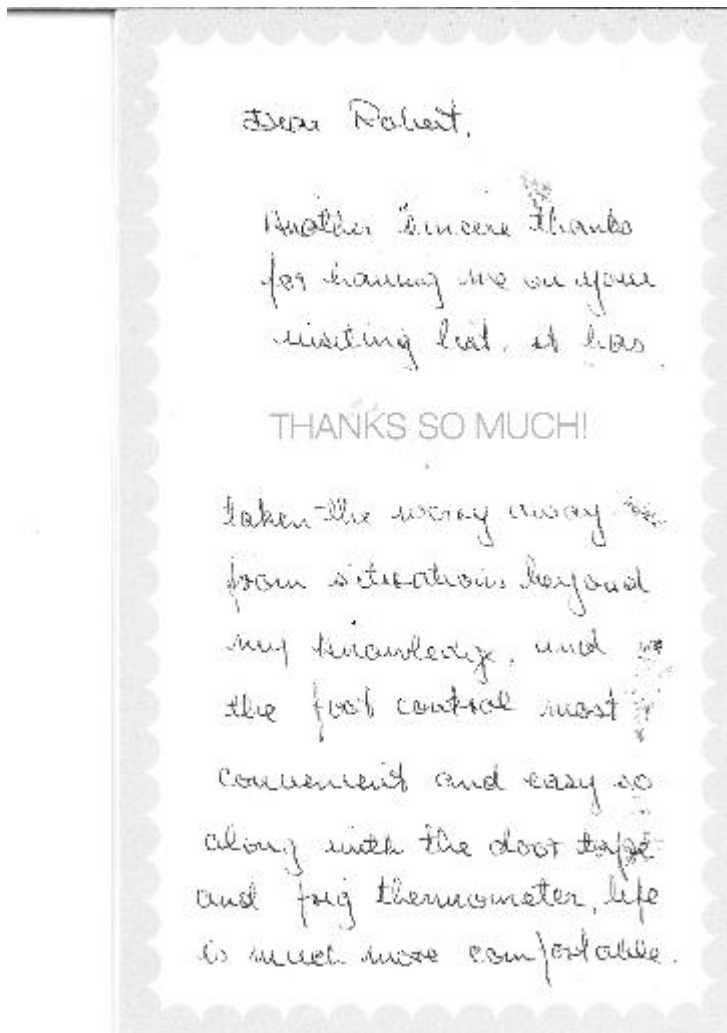 Dear Robert,
Another sincere thanks
for having me on your
visiting list. it has
THANKS SO MUCH!
taken the worry away
from situations beyond
my knowledge, and
the foot control most
convenient and easy so
along with the door tape
and frig thermometer, life
is much more comfortable.